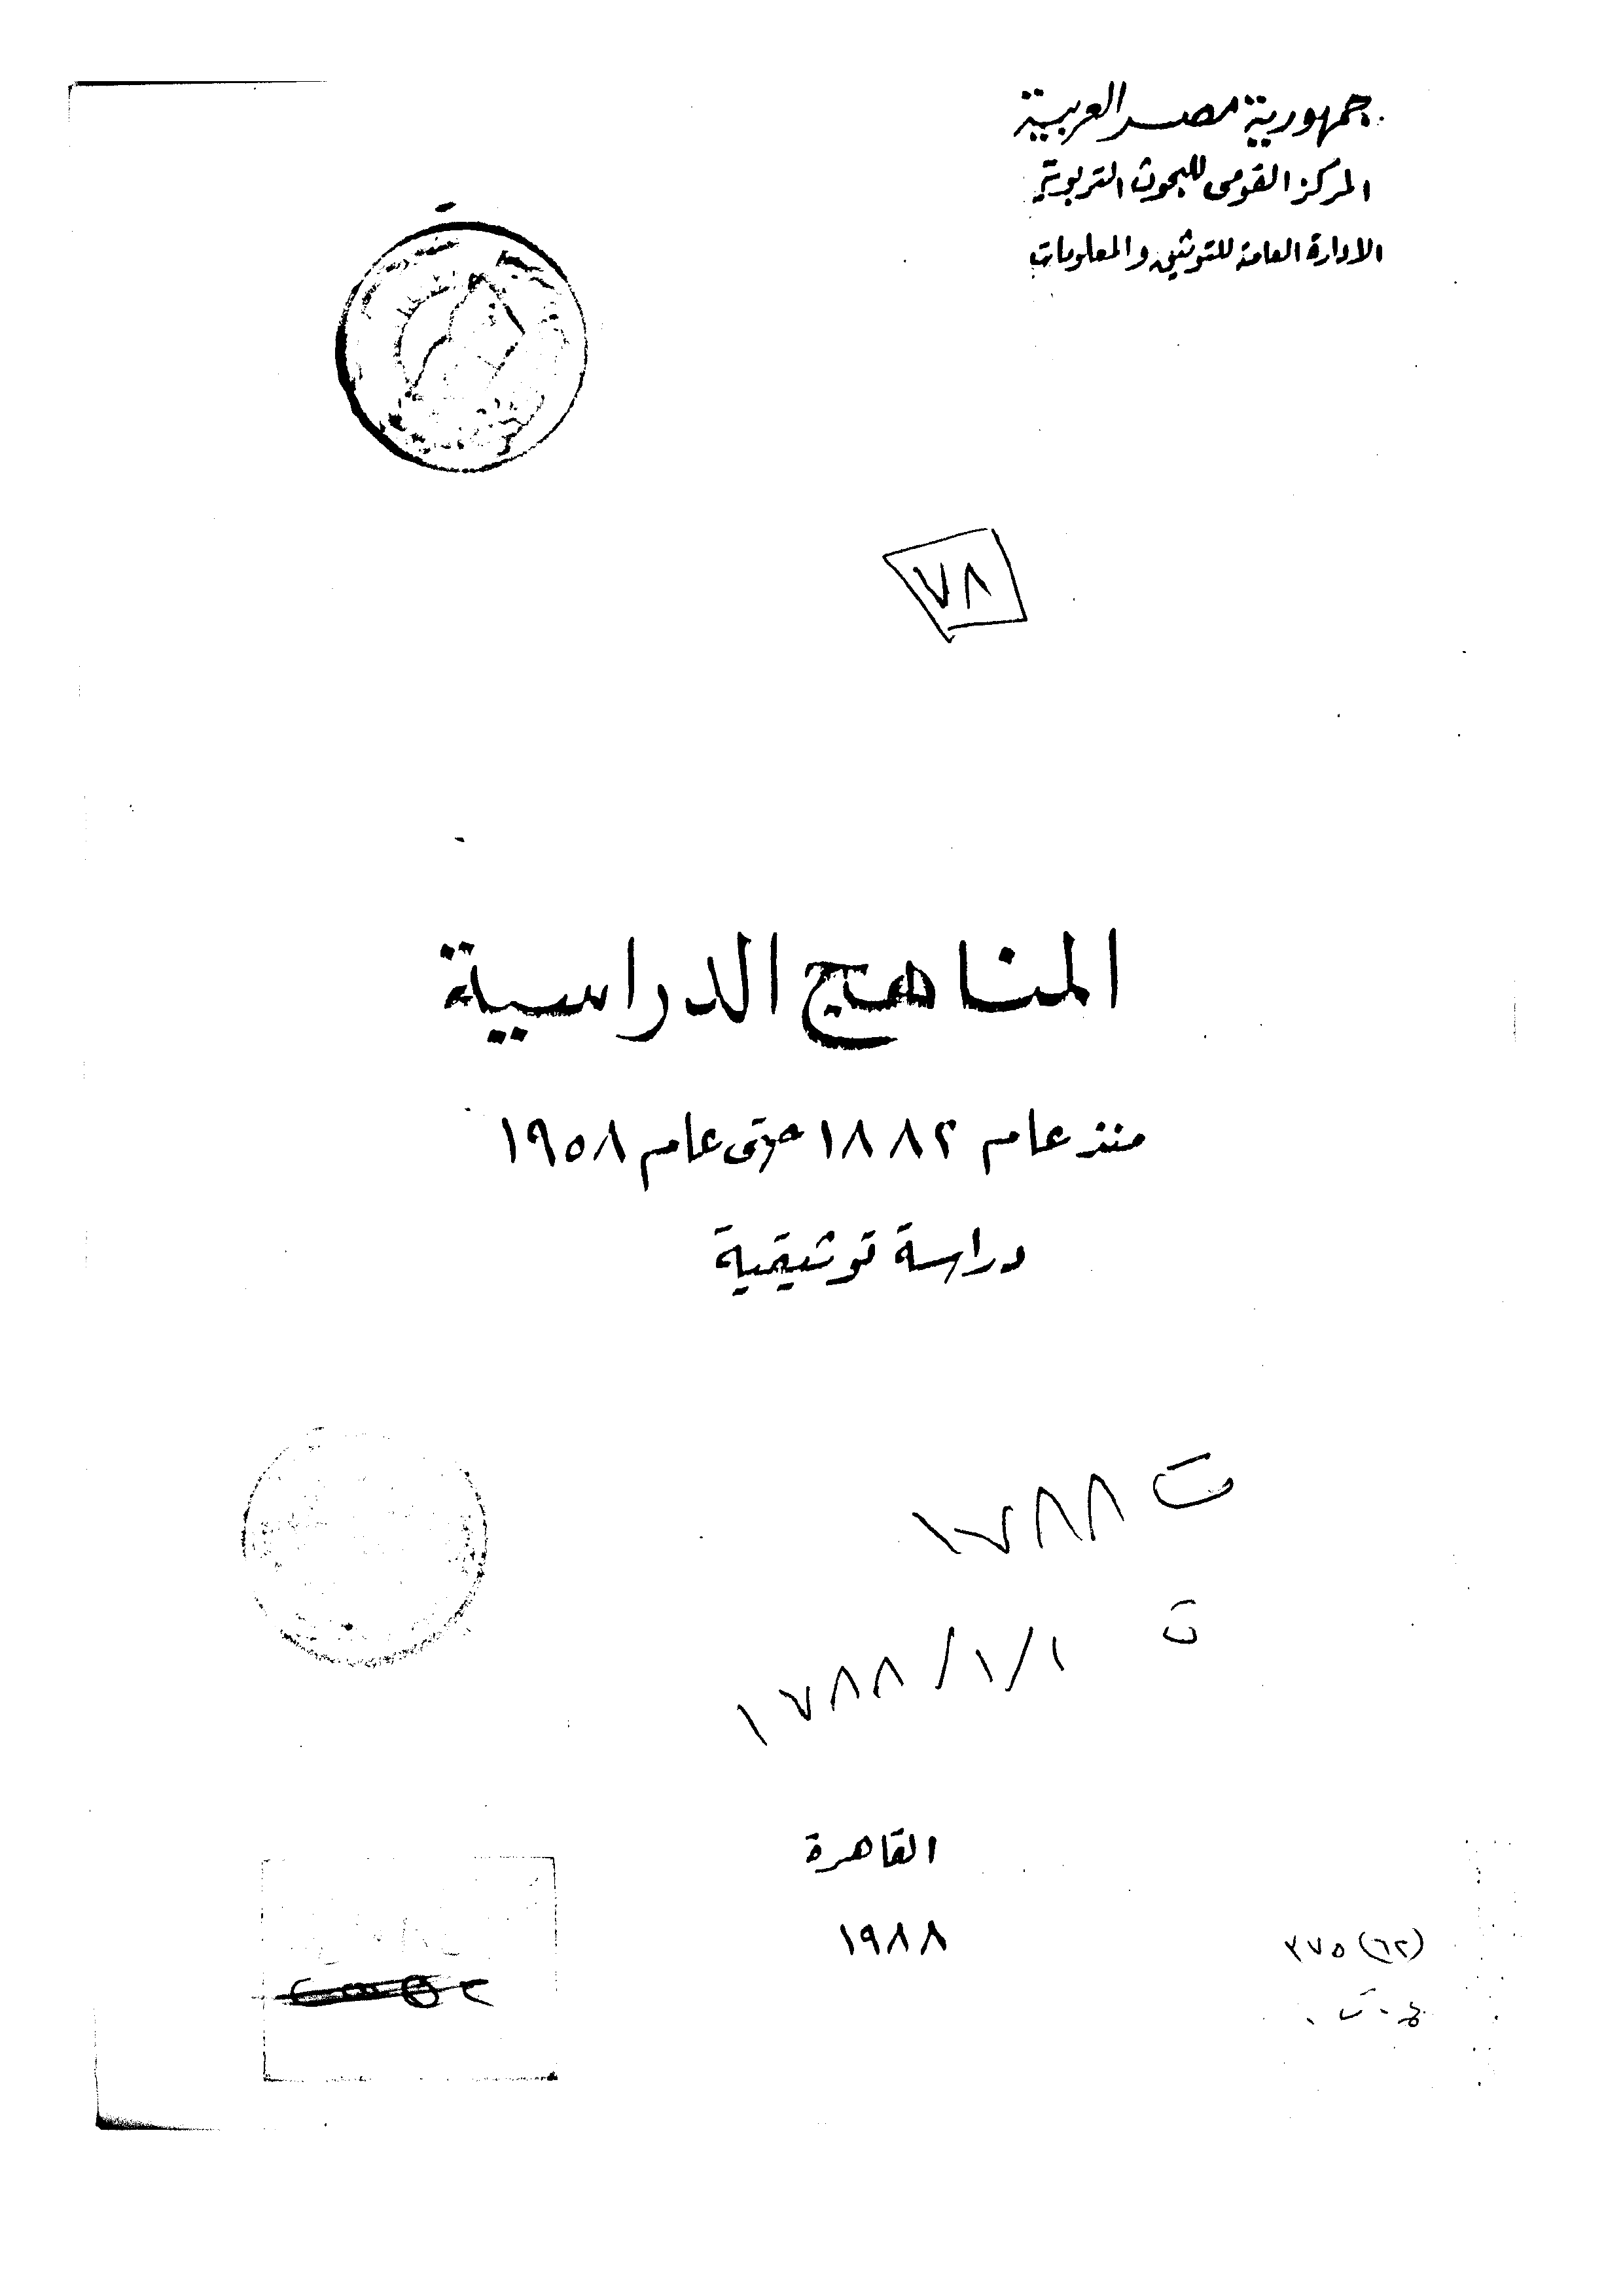 جمهورية مصر العربية
المركز القومى للبحوث التربوية
الادارة العامة للتوثيق والمعلومات
٧٨
المناهج الدراسية
منذ عام ١٨٨٢ حتى عام ١٩٥٨
دراسة توثيقية
ت ١٧٨٨
ت ١٧٨٨/١/١
القاهرة
١٩٨٨
٣٧٥ (٦٢)